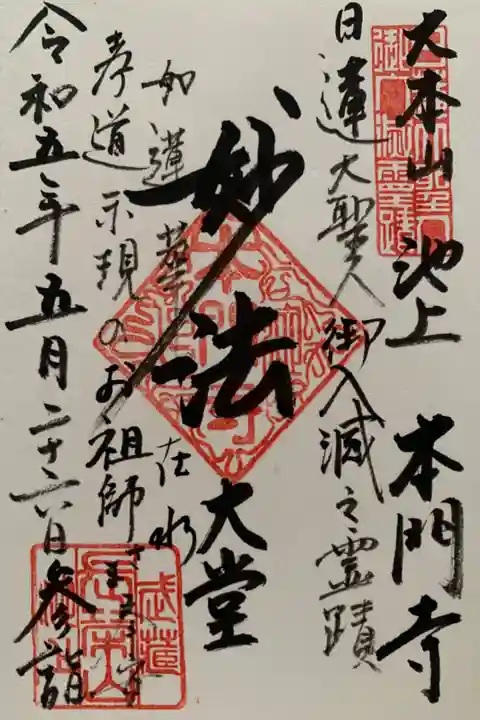 大本山 池上 本門寺
日蓮大聖人御入滅之霊蹟
妙法
大堂
如蓮華在水
孝道示現のお祖師さま
令和五年五月二十六日参詣